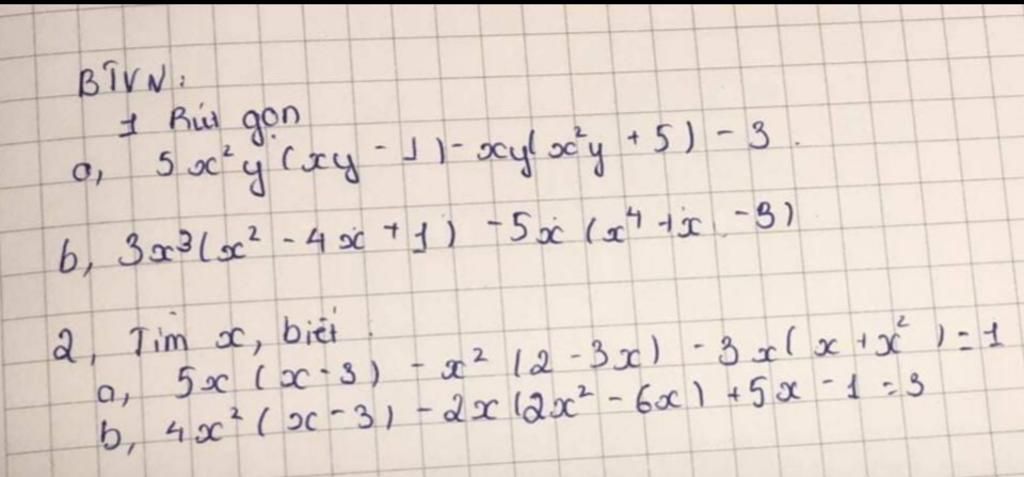 BTVN:
1 Rút gọn
a, 5x²y (xy - 1) - xy( x²y + 5) - 3.
b, 3x³(x² - 4x + 1) - 5x (x⁴ + x - 3)
2, Tìm x, biết.
a, 5x (x - 3) - x² (2 - 3x) - 3x( x + x² ) = 1
b, 4x² ( x - 3) - 2x (2x² - 6x) + 5x - 1 = 3